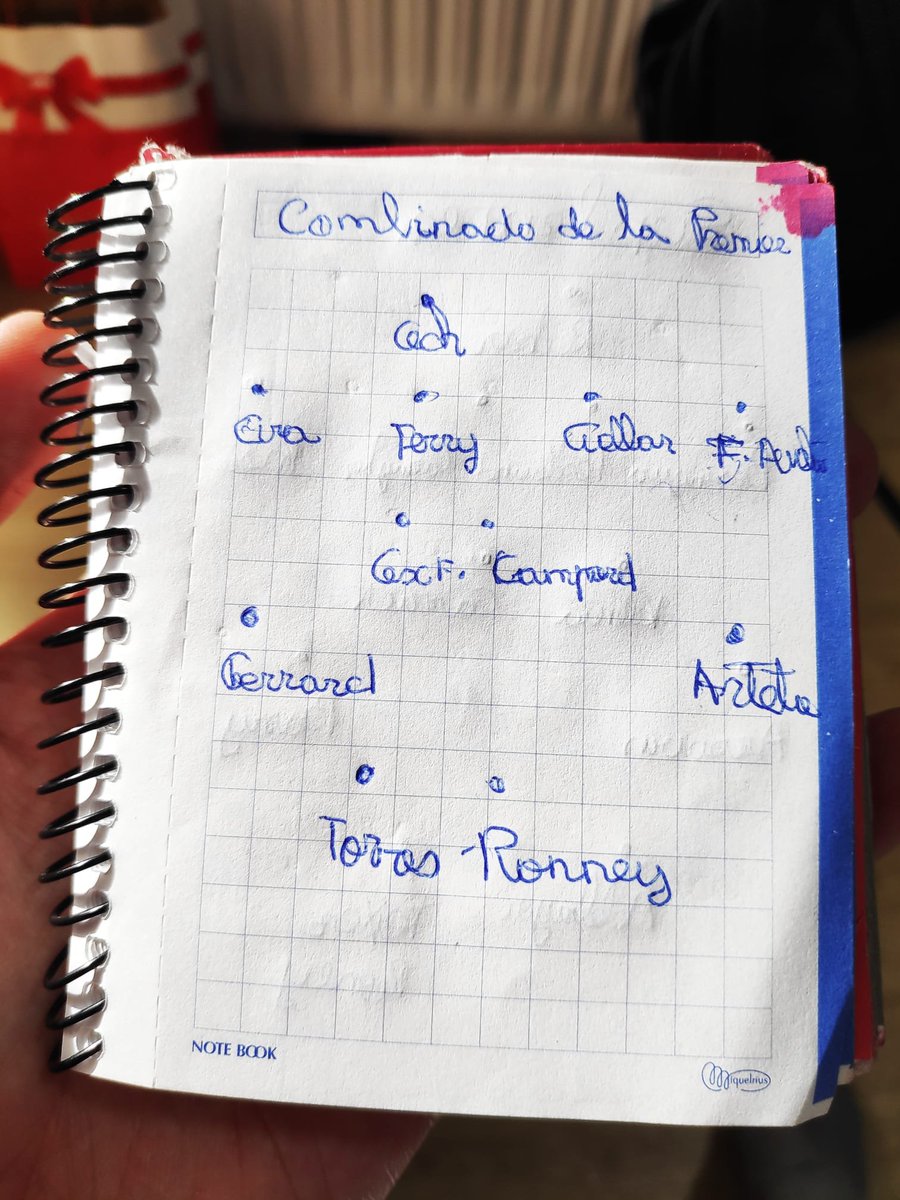 Combinado de la Premier
Cech
Eira Terry Gallar F. Aurelio
Cesc F. Lampard
Gerrard Arteta
Torres Ronney
NOTE BOOK
Miquelrius